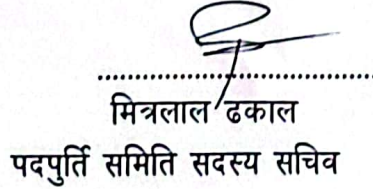 मित्रलाल ढकाल
पदपुर्ति समिति सदस्य सचिव